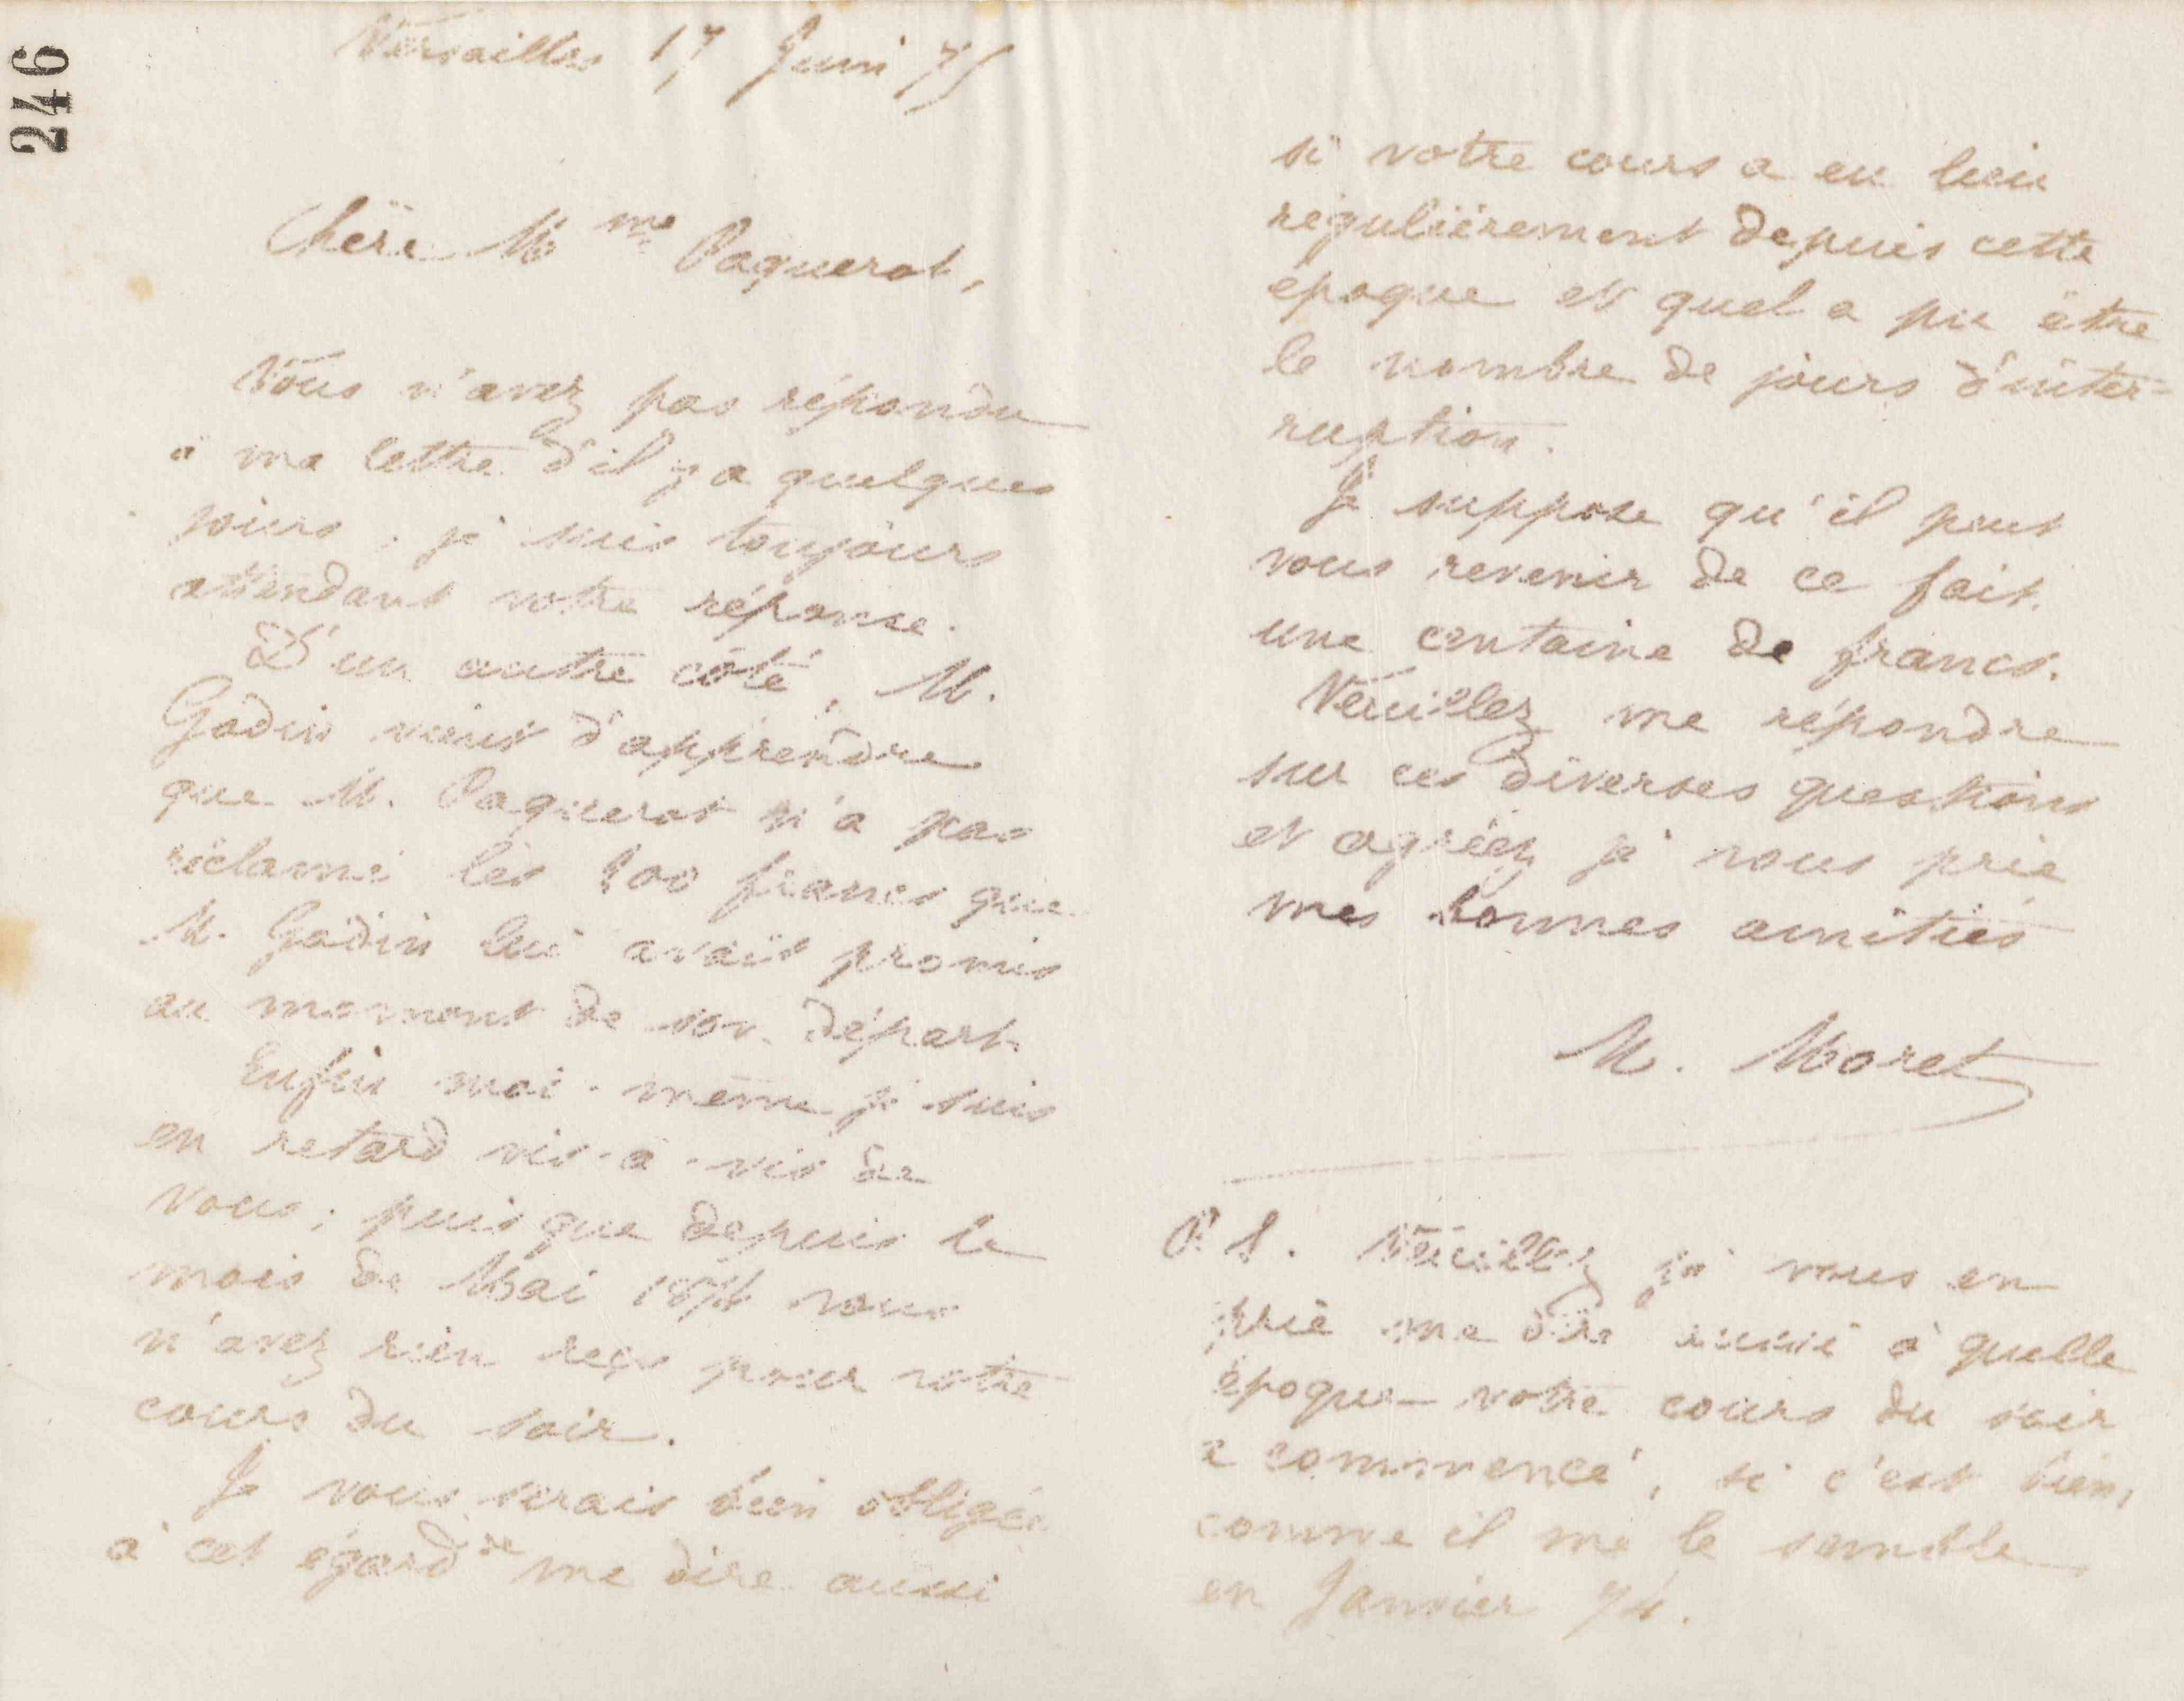 246
Versailles 17 Juin 75
Chère Mme Paquerot,
Vous n'avez pas répondu
à ma lettre d'il y a quelques
jours. je suis toujours
attendant votre réponse.
D'un autre côté, M.
Godin vient d'apprendre
que M. Paquerot n'a pas
réclamé les 00 francs que
M. Godin lui avait promis
au moment de son départ.
Enfin moi-même je suis
en retard vis-à-vis de
vous; puisque depuis le
mois de Mai 1874 vous
n'avez rien reçu pour votre
cours du soir.
Je vous serais bien obligée
à cet égard de me dire aussi
si votre cours a eu lieu
régulièrement depuis cette
époque et quel a pu être
le nombre de jours d'inter-
ruption.
Je suppose qu'il peut
vous revenir de ce fait
une centaine de francs.
Veuillez me répondre
sur ces diverses questions
et agréez je vous prie
mes bonnes amitiés
M. Moret
P. S. Veuillez je vous en
prie me dire aussi à quelle
époque votre cours du soir
a commencé, si c'est bien,
comme il me le semble
en Janvier 74.